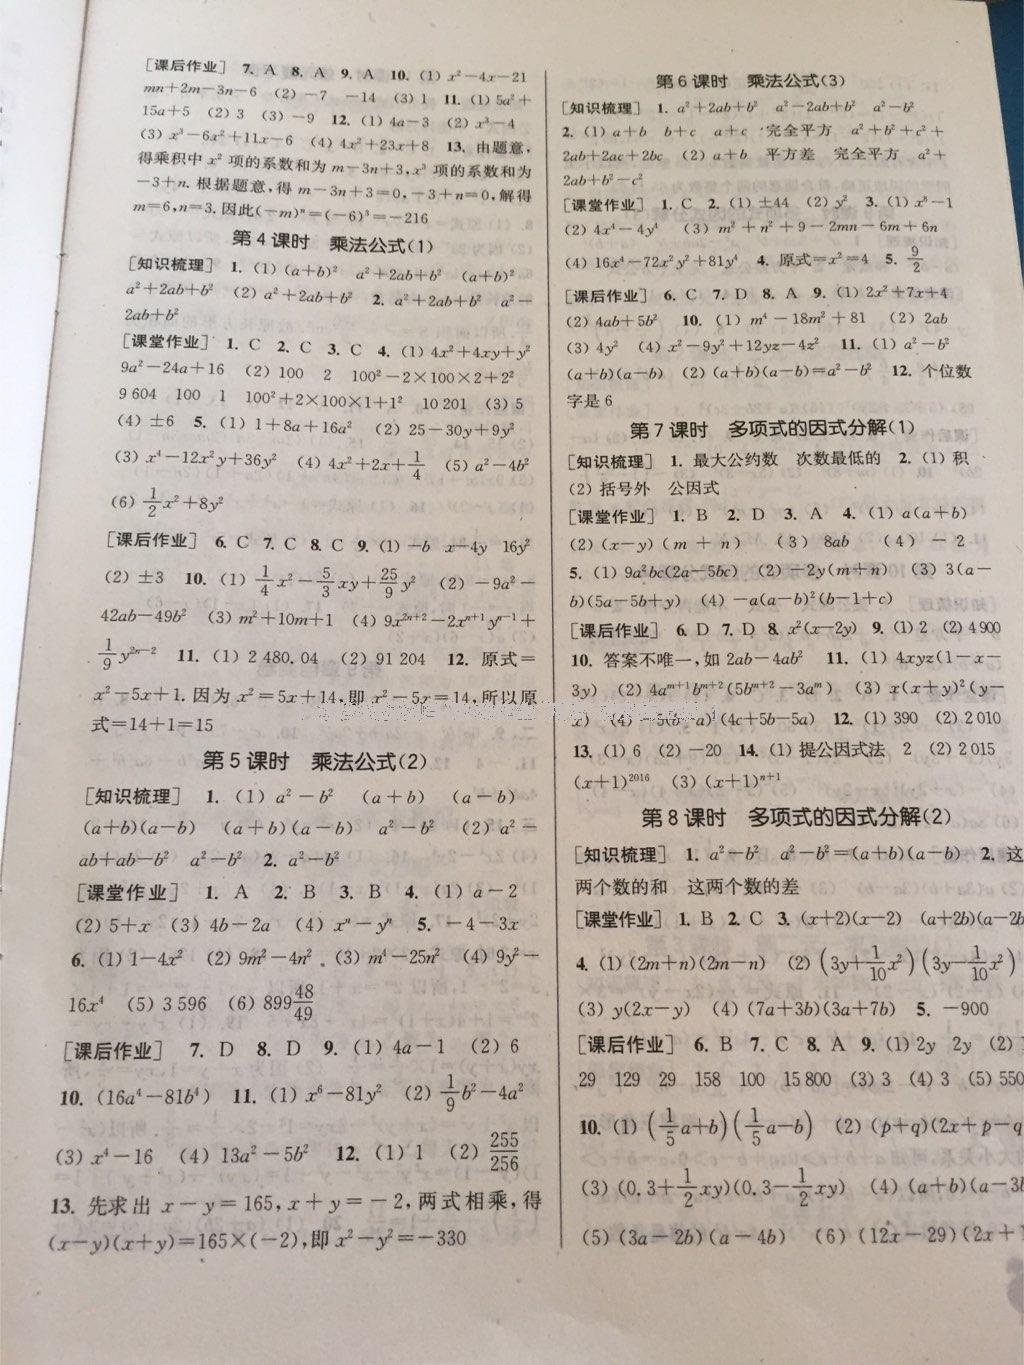 [课后作业] 7. A 8. A 9. A 10. (1) x²-4x-21
mn+2m-3n-6 (2) -7 -14 (3) 1 11. (1) 5a²+
15a+5 (2) 3 (3) -9 12. (1) 4a-3 (2) x³-4
(3) x³-6x²+11x-6 (4) 4x²+23x+8 13. 由题意,
得乘积中 x² 项的系数和为 m-3n+3,x³ 项的系数和为
-3+n. 根据题意,得 m-3n+3=0,-3+n=0,解得
m=6,n=3. 因此(-m)ⁿ=(-6)³=-216
第 4 课时 乘法公式(1)
[知识梳理] 1. (1) (a+b)² a²+2ab+b² (a+b)²
a²+2ab+b² (2) a²+2ab+b² 2. a²+2ab+b² a²-
2ab+b²
[课堂作业] 1. C 2. C 3. C 4. (1) 4x²+4xy+y²
9a²-24a+16 (2) 100 2 100²-2×100×2+2²
9 604 100 1 100²+2×100×1+1² 10 201 (3) 5
(4) ±6 5. (1) 1+8a+16a² (2) 25-30y+9y²
(3) x⁴-12x²y+36y² (4) 4x²+2x+1/4 (5) a²-4b²
(6) 1/2x²+8y²
[课后作业] 6. C 7. C 8. C 9. (1) -b x-4y 16y²
(2) ±3 10. (1) 1/4x²-5/3xy+25/9y² (2) -9a²-
42ab-49b² (3) m²+10m+1 (4) 9x²ⁿ⁺²-2xⁿ⁺¹yⁿ⁻¹+
1/9y²ⁿ⁻² 11. (1) 2 480.04 (2) 91 204 12. 原式=
x²-5x+1. 因为 x²=5x+14,即 x²-5x=14,所以原
式=14+1=15
第 5 课时 乘法公式(2)
[知识梳理] 1. (1) a²-b² (a+b) (a-b)
(a+b)(a-b) (a+b)(a-b) a²-b² (2) a²-
ab+ab-b² a²-b² 2. a²-b²
[课堂作业] 1. A 2. B 3. B 4. (1) a-2
(2) 5+x (3) 4b-2a (4) xⁿ-yⁿ 5. -4-3x
6. (1) 1-4x² (2) 9m²-4n² (3) m⁴-25n² (4) 9y²-
16x⁴ (5) 3 596 (6) 899 48/49
[课后作业] 7. D 8. D 9. (1) 4a-1 (2) 6
10. (16a⁴-81b⁴) 11. (1) x⁶-81y² (2) 1/9b²-4a²
(3) x⁴-16 (4) 13a²-5b² 12. (1) 1 (2) 255/256
13. 先求出 x-y=165,x+y=-2,两式相乘,得
(x-y)(x+y)=165×(-2),即 x²-y²=-330
第 6 课时 乘法公式(3)
[知识梳理] 1. a²+2ab+b² a²-2ab+b² a²-b²
2. (1) a+b b+c a+c 完全平方 a²+b²+c²+
2ab+2ac+2bc (2) a+b 平方差 完全平方 a²+
2ab+b²-c²
[课堂作业] 1. C 2. (1) ±44 (2) y² 3. (1) x⁸-1
(2) 4x⁴-4y⁴ (3) m²+n²+9-2mn-6m+6n
(4) 16x⁴-72x²y²+81y⁴ 4. 原式=x²=4 5. 9/2
[课后作业] 6. C 7. D 8. A 9. (1) 2x²+7x+4
(2) 4ab+5b² 10. (1) m⁴-18m²+81 (2) 2ab
(3) 4y² (4) x²-9y²+12yz-4z² 11. (1) a²-b²
(a+b)(a-b) (2) (a+b)(a-b)=a²-b² 12. 个位数
字是 6
第 7 课时 多项式的因式分解(1)
[知识梳理] 1. 最大公约数 次数最低的 2. (1) 积
(2) 括号外 公因式
[课堂作业] 1. B 2. D 3. A 4. (1) a(a+b)
(2) (x-y)(m+n) (3) 8ab (4) -2
5. (1) 9a²bc(2a-5bc) (2) -2y(m+n) (3) 3(a-
b)(5a-5b+y) (4) -a(a-b)²(b-1+c)
[课后作业] 6. D 7. D 8. x²(x-2y) 9. (1) 2 (2) 4 900
10. 答案不唯一,如 2ab-4ab² 11. (1) 4xyz(1-x-
3y) (2) 4aᵐ⁺¹bᵐ⁺²(5bᵐ⁺²-3aᵐ) (3) x(x+y)²(y-
x) (4) -5(b-a)³(4c+5b-5a) 12. (1) 390 (2) 2 010
13. (1) 6 (2) -20 14. (1) 提公因式法 2 (2) 2 015
(x+1)²⁰¹⁶ (3) (x+1)ⁿ⁺¹
第 8 课时 多项式的因式分解(2)
[知识梳理] 1. a²-b² a²-b²=(a+b)(a-b) 2. 这
两个数的和 这两个数的差
[课堂作业] 1. B 2. C 3. (x+2)(x-2) (a+2b)(a-2b
4. (1) (2m+n)(2m-n) (2) (3y+1/10x²)(3y-1/10x²)
(3) y(2x-y) (4) (7a+3b)(3a+7b) 5. -900
[课后作业] 6. B 7. C 8. A 9. (1) 2y 2y (2)
29 129 29 158 100 15 800 (3) 3 (4) 3 (5) 550
10. (1) (1/5a+b)(1/5a-b) (2) (p+q)(2x+p-q
(3) (0.3+1/2xy)(0.3-1/2xy) (4) (a+b)(a-3b
(5) (3a-2b)(a-4b) (6) (12x-29)(2x+